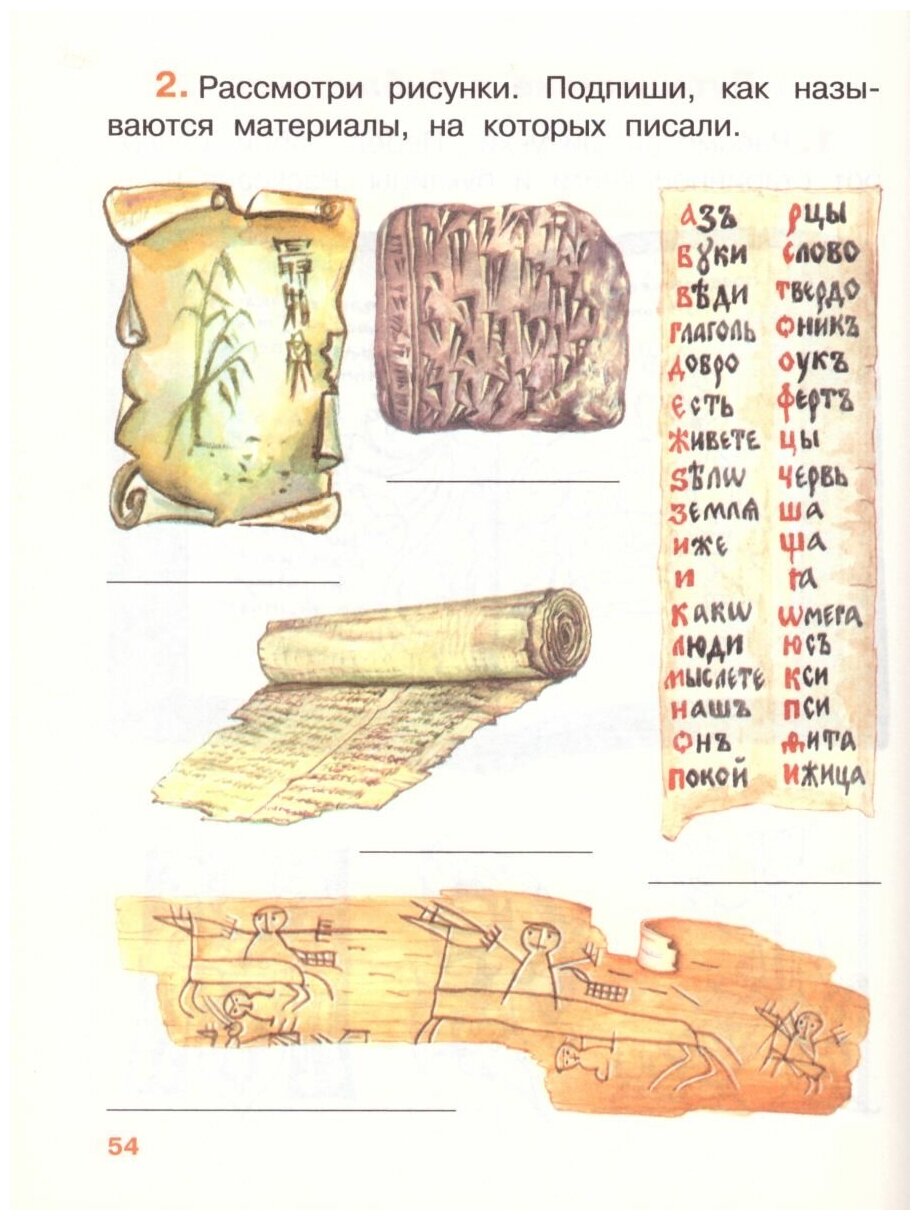 2. Рассмотри рисунки. Подпиши, как назы-
ваются материалы, на которых писали.
Азъ
Бꙋки
Вѣди
Глаголь
Добро
Есть
Живете
Ѕѣлѡ
Землѧ
Иже
И
Какѡ
Люди
Мыслете
Нашъ
Онъ
Покой
Рцы
Слово
Твердо
Оникъ
Оукъ
Фертъ
Цы
Червь
Ша
Ща
Ꙗ
Ѡмега
Юсъ
Кси
Пси
Ѳита
Ижица
54